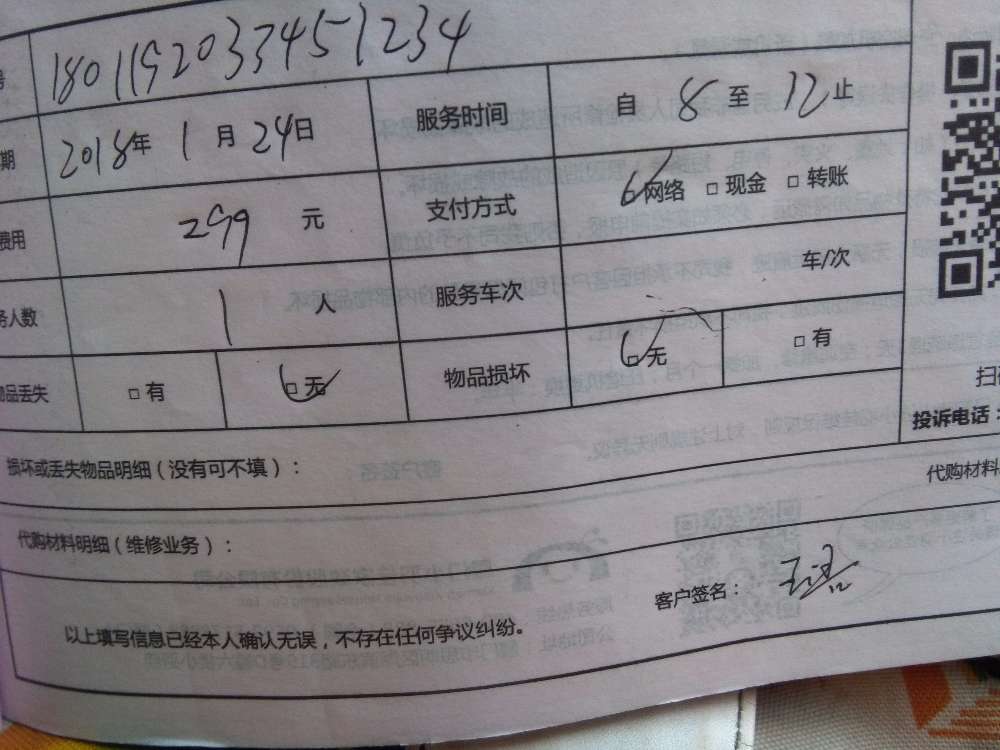 号 180119203345​1234
期 2018年 1 月 24日 服务时间 自 8 至 12 止
费用 299 元 支付方式 网络 □ 现金 □ 转账
务人数 1 人 服务车次 车/次
物品丢失 □ 有 □ 无 物品损坏 □ 无 □ 有
扫
投诉电话：
损坏或丢失物品明细（没有可不填）：
代购材料
代购材料明细（维修业务）：
客户签名：
以上填写信息已经本人确认无误，不存在任何争议纠纷。